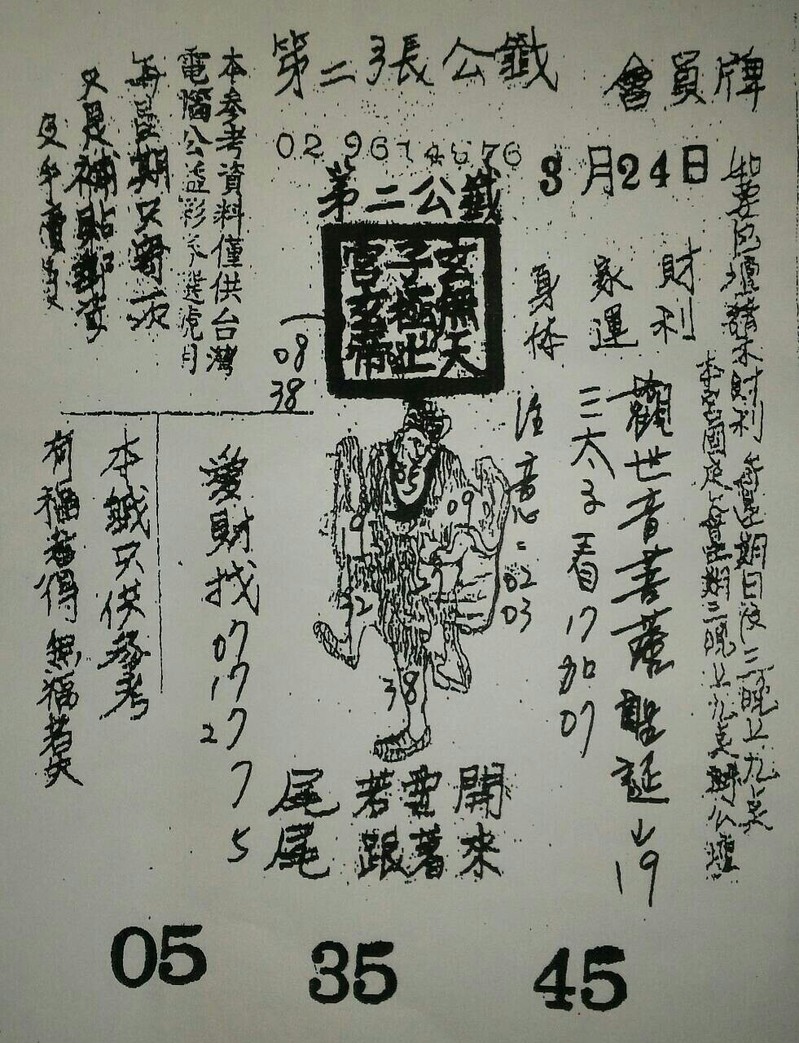 第二張公籤
會員牌
02 9674676
3月24日
第二公籤
玄無天
子極山
宮玄帝
財利
家運
身体
如要包壇請求財利 每星期日後三晚上九点
本宮國定每星期三晚上九点辦公壇
觀世音菩薩聖誕 19
三太子看17加07
注意:02
03
09
32
38
08
38
本参考資料僅供台灣
電腦公益彩券選號用
每星期只寄一次
只是補貼郵資
愛財找07
17
27
7
5
本籤只供参考
有福者得 無福者失
開來
靈著
若跟
尾尾
05
35
45